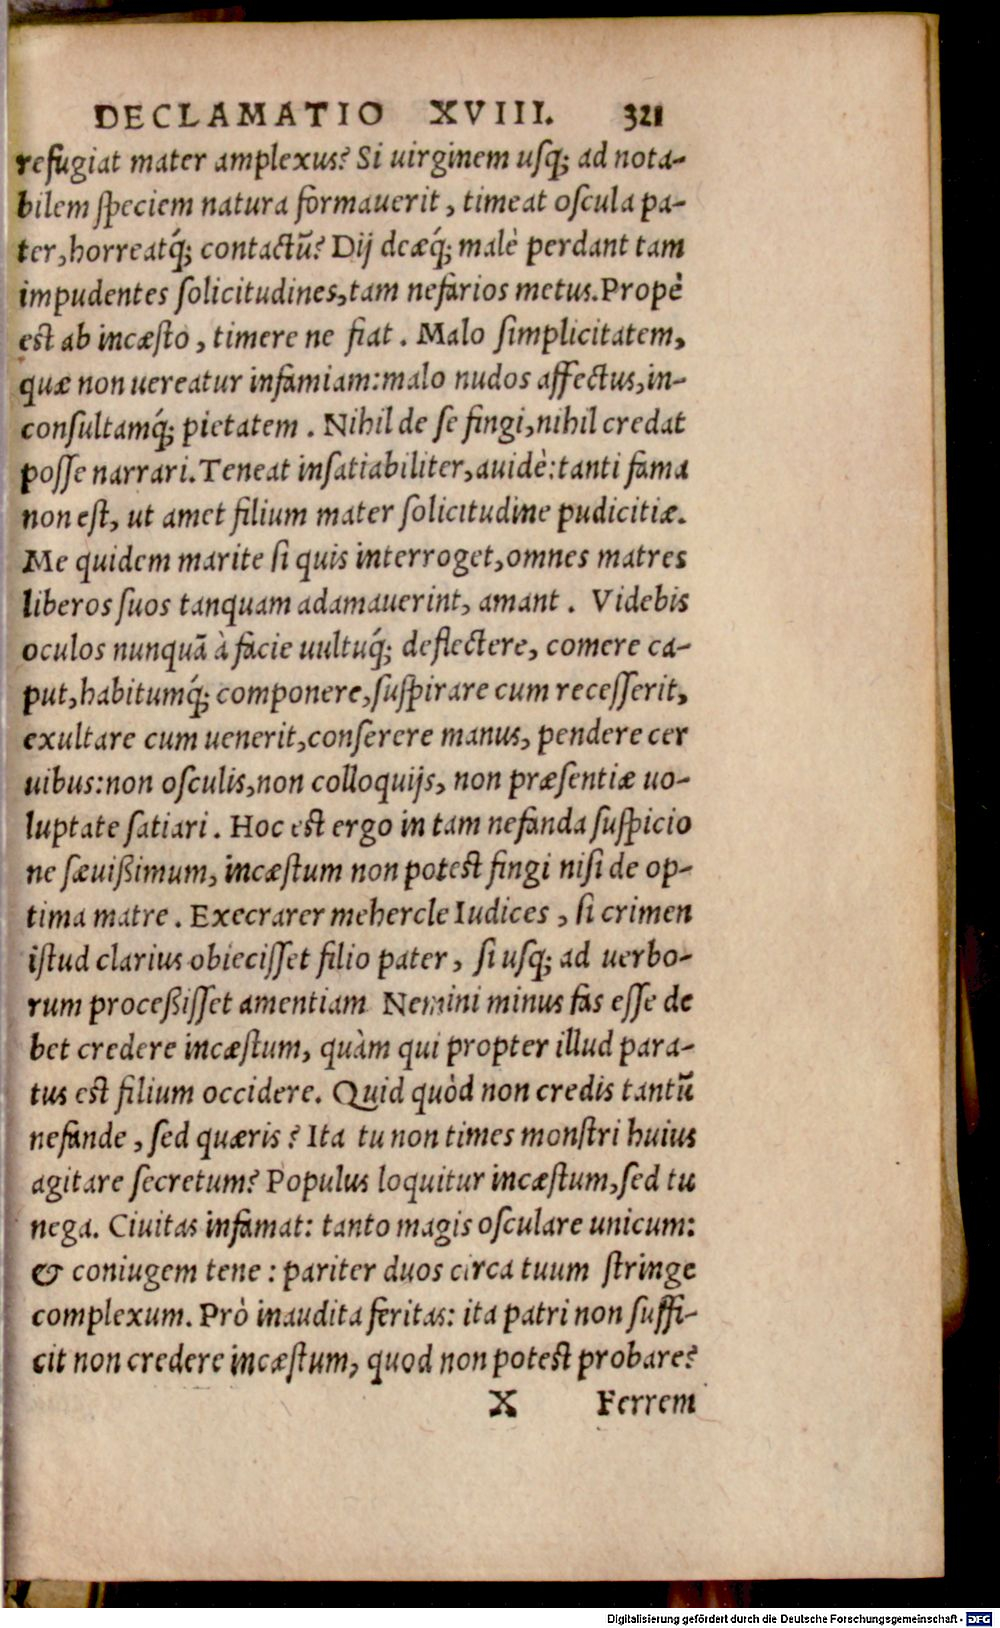 DECLAMATIO XVIII. 321
refugiat mater amplexus? Si uirginem usq; ad nota-
bilem speciem natura formauerit, timeat oscula pa-
ter, horreatq́; contactũ? Dij deæq́; malè perdant tam
impudentes solicitudines, tam nefarios metus. Propè
est ab incæsto, timere ne fiat. Malo simplicitatem,
quæ non uereatur infamiam: malo nudos affectus, in-
consultamq́; pietatem. Nihil de se fingi, nihil credat
posse narrari. Teneat insatiabiliter, auidè: tanti fama
non est, ut amet filium mater solicitudine pudicitiæ.
Me quidem marite si quis interroget, omnes matres
liberos suos tanquam adamauerint, amant. Videbis
oculos nunquã à facie uultuq́; deflectere, comere ca-
put, habitumq́; componere, suspirare cum recesserit,
exultare cum uenerit, conserere manus, pendere cer
uibus: non osculis, non colloquijs, non præsentiæ uo-
luptate satiari. Hoc est ergo in tam nefanda suspicio
ne sæuißimum, incæstum non potest fingi nisi de op-
tima matre. Execrarer mehercle Iudices, si crimen
istud clarius obiecisset filio pater, si usq; ad uerbo-
rum proceßisset amentiam Nemini minus fas esse de
bet credere incæstum, quàm qui propter illud para-
tus est filium occidere. Quid quòd non credis tantũ
nefande, sed quæris? Ita tu non times monstri huius
agitare secretum? Populus loquitur incæstum, sed tu
nega. Ciuitas infamat: tanto magis osculare unicum:
& coniugem tene: pariter duos circa tuum stringe
complexum. Prò inaudita feritas: ita patri non suffi-
cit non credere incæstum, quod non potest probare?
X Ferrem
Digitalisierung gefördert durch die Deutsche Forschungsgemeinschaft - DFG